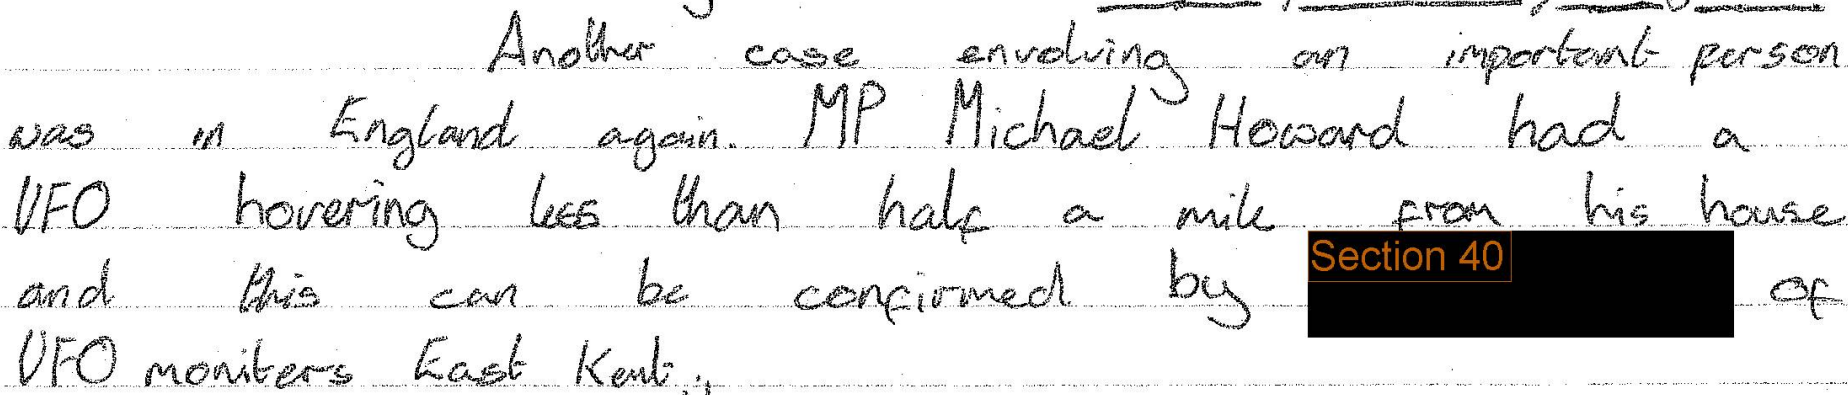 Another case envolving an important person
was in England again. MP Michael Howard had a
UFO hovering less than half a mile from his house
and this can be confirmed by Section 40 of
UFO moniters East Kent.